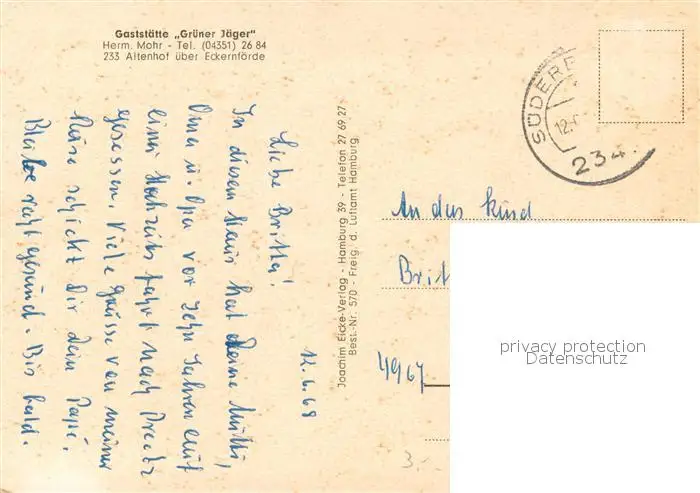 Gaststätte „Grüner Jäger"
Herm. Mohr - Tel. (04351) 26 84
233 Altenhof über Eckernförde
12.6.68
Liebe Britta!
In diesem Haus hat deine Mutti,
Oma u. Opa vor zehn Jahren auf
einer Hochzeitsfahrt nach Preetz
gegessen. Viele Grüsse von meiner
Reise schickt Dir dein Papi.
Bleibe recht gesund. Bis bald.
Joachim Eicke-Verlag - Hamburg 39 - Telefon 27 69 27
Best.-Nr. 570 - Freig. d. Luftamt Hamburg
SÜDERB
12.
234
An das Kind
Brit
4967
3,-
privacy protection
Datenschutz